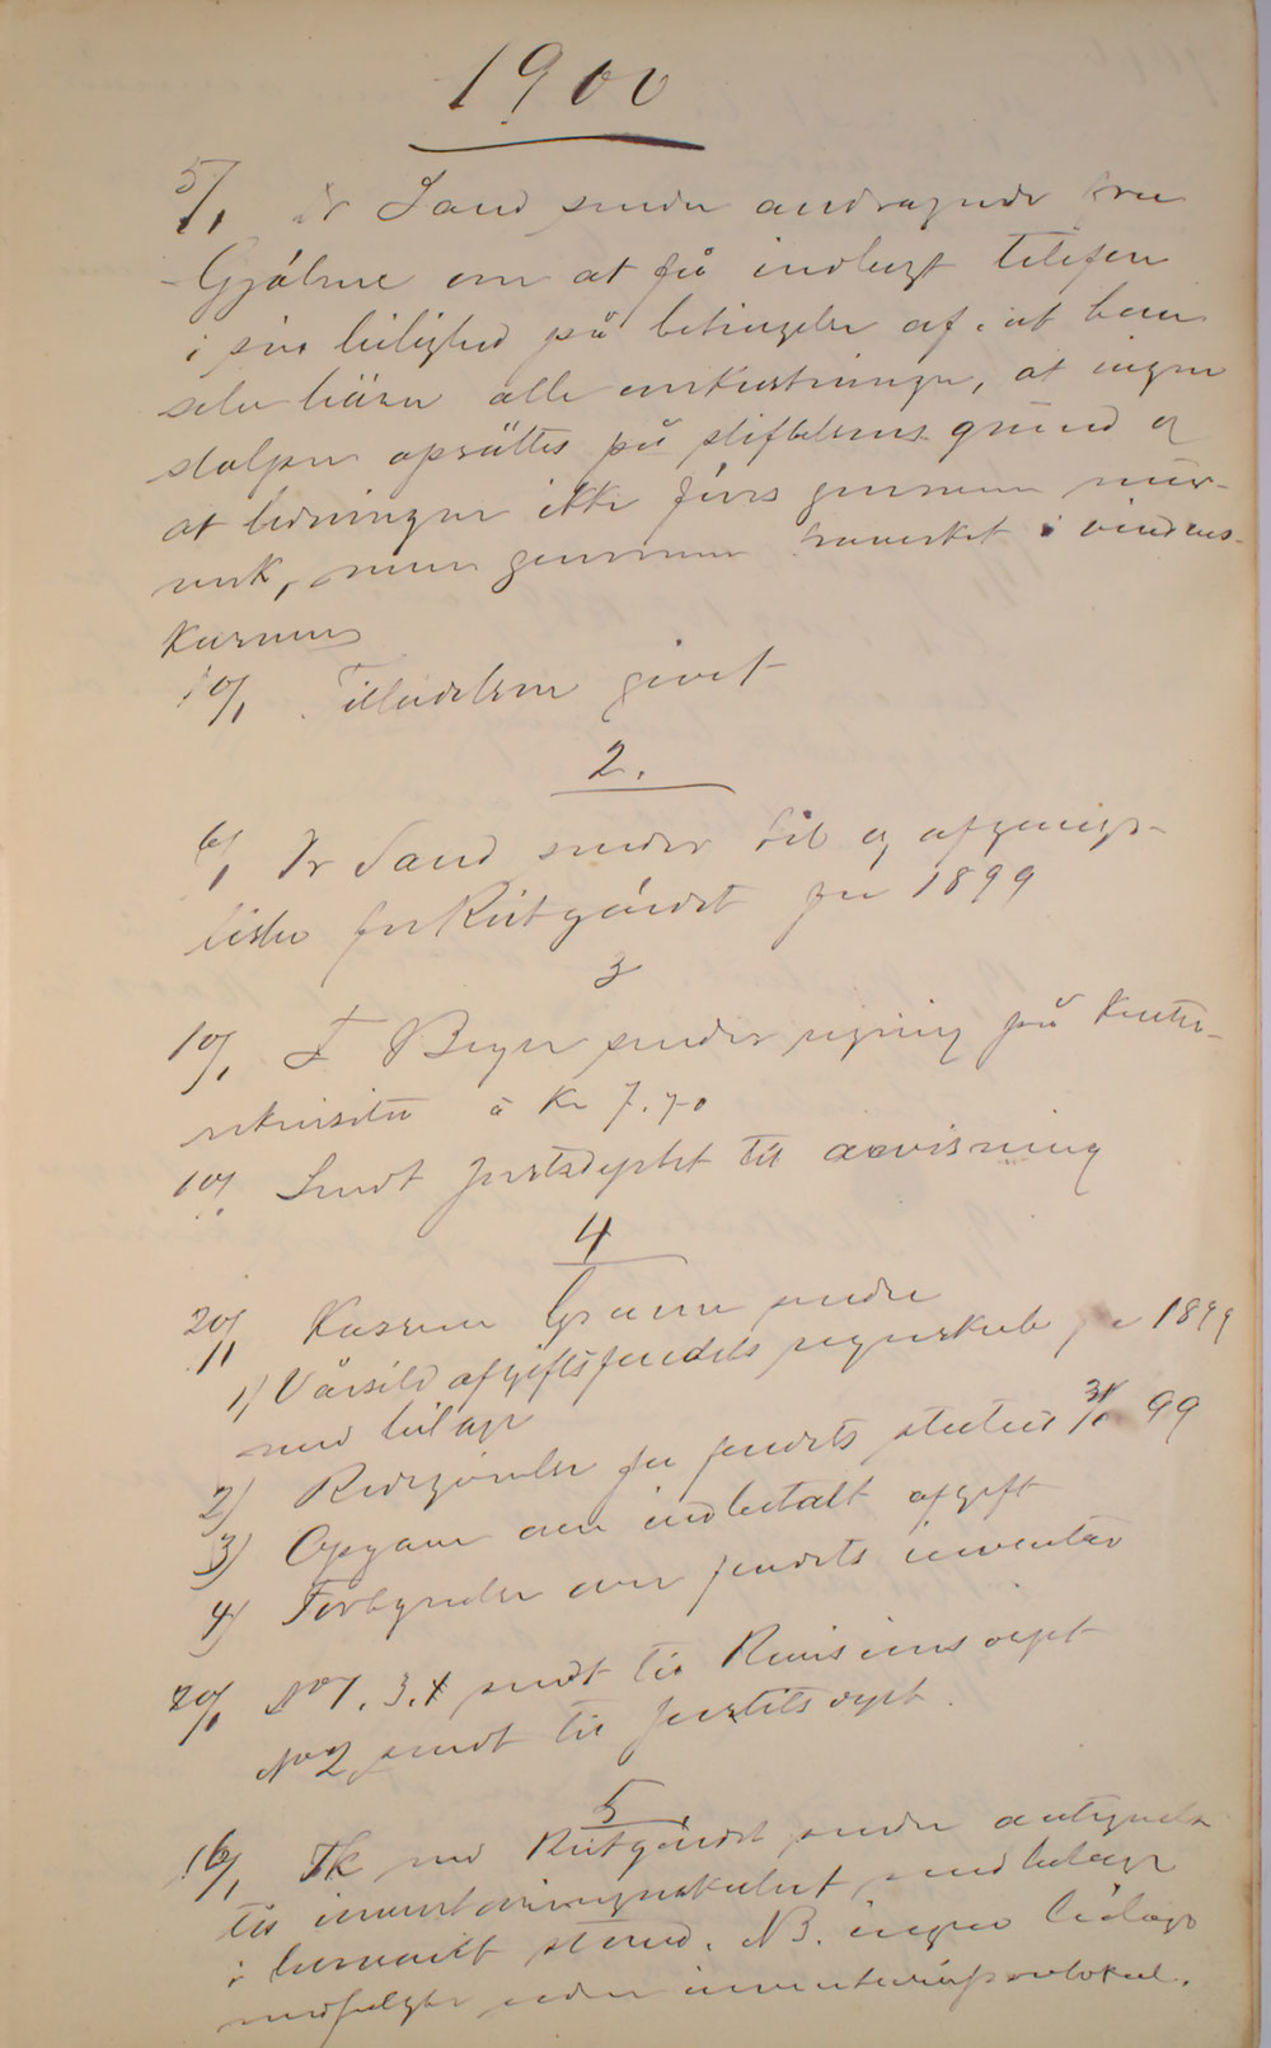 1900
5/1 Dr Sand sender andragende fra
Gjölme om at få indlagt telefon
i sin leilighed på betingelse af, at han
selv bärer alle omkostninger, at ingen
stolper oprättes på stiftelsens grund og
at ledningen ikke föres gennem mur-
verk, men gennem traverket i vindus-
karmen
10/1 Tilladelsen givet
2.
6/1 Dr Sand sender til og afgangs-
liste for Reitgärdet for 1899
3
10/1 F Beyer sender regning på kontor-
rekvisita à Kr 7.70
10/1 Sendt justsdeptet til anvisning
4
20/1 Kasserer Gram sender
1) Vårsild afgiftsfondets regnskab for 1899
med bilage
2) Redegörelse for fondets status 31/12 99
3) Opgave over indbetalt afgift
4) Fortegnelse over fondets inventar
20/1 No 1. 3. 4 sendt til Revisionsdept
No 2 sendt til justitsdept.
5
16/1 Fk ved Reitgärdet sender antegnelser
til inventarieregnskabet med bilage
i besvaret stand. NB. ingen bilage
medfulgte eller inventarieprotokol.